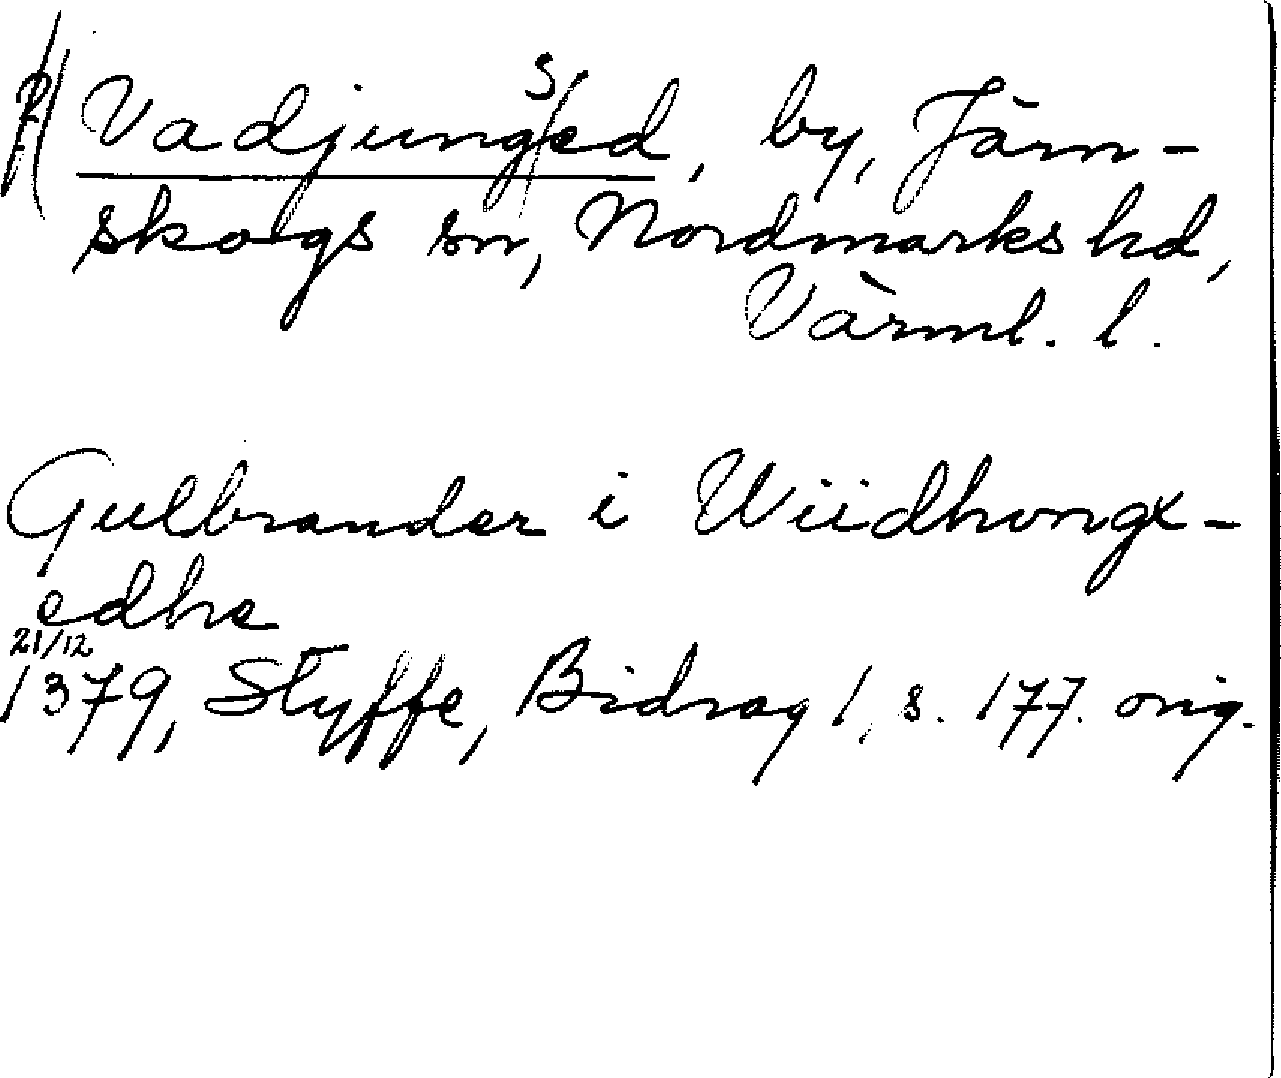 Vadjungsed, by, Järn-
skogs sn, Nordmarks hd,
Värml. l.
Gulbrander i Wiidhongx-
edhe
21/12
1379, Styffe, Bidrag 1, s. 177. orig.